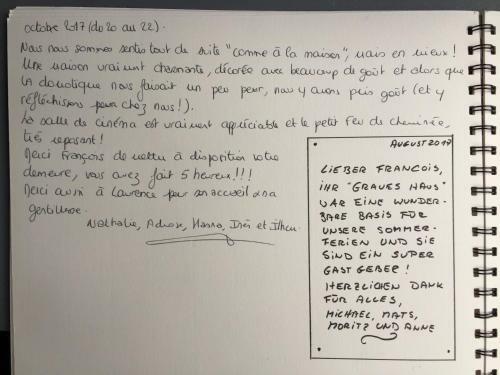 octobre 2017 (du 20 au 22).
Nous nous sommes sentis tout de suite "comme à la maison", mais en mieux!
Une maison vraiment charmante, décorée avec beaucoup de goût et alors que
la domotique nous faisait un peu peur, nous y avons pris goût (et y
réfléchissons pour chez nous!).
La salle de cinéma est vraiment appréciable et le petit feu de cheminée,
très reposant!
Merci François de mettre à disposition votre
demeure, vous avez fait 5 heureux!!!
Merci aussi à Laurence pour son accueil et sa
gentillesse.
Nathalie, Hanna, Inès et
AUGUST 2017
LIEBER FRANCOIS,
IHR "GRAUES HAUS"
WAR EINE WUNDER-
BARE BASIS FÜR
UNSERE SOMMER-
FERIEN UND SIE
SIND EIN SUPER
GASTGEBER!
HERZLICHEN DANK
FÜR ALLES,
MICHAEL, MATS,
MORITZ UND ANNE